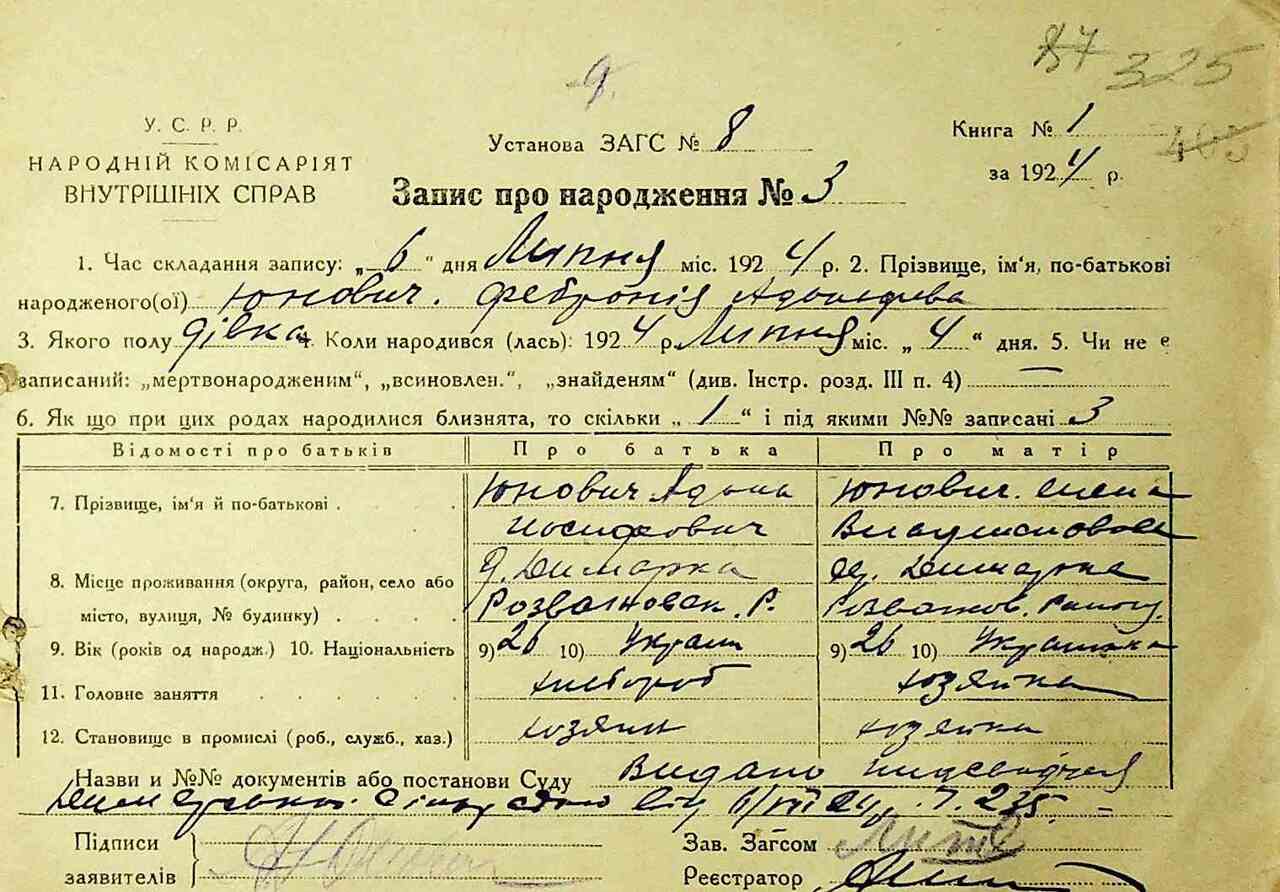 87 325
У. С. Р. Р.
НАРОДНІЙ КОМІСАРІЯТ
ВНУТРІШНІХ СПРАВ
Установа ЗАГС № 8
Книга № 1
403
за 1924 р.
Запис про народження № 3
1. Час складання запису: „6“ дня Липня міс. 1924 р. 2. Прізвище, ім'я, по-батькові
народженого(ої) Юнович. Фебронія
3. Якого полу дівка 4. Коли народився (лась): 1924 р. Липня міс. „4“ дня. 5. Чи не є
записаний: „мертвонародженим“, „всиновлен.“, „знайденям“ (див. Інстр. розд. III п. 4) —
6. Як що при цих родах народилися близнята, то скільки „1“ і під якими №№ записані 3
Відомості про батьків Про батька Про матір
7. Прізвище, ім'я й по-батькові . . Юнович Юнович.
Иосифович
8. Місце проживання (округа, район, село або Димарка
місто, вулиця, № будинку) . . . . Р.
9. Вік (років од народж.) 10. Національність 9) 26 10) Украин 9) 26 10) Украинка
11. Головне заняття . . . . . хлебороб хозяйка
12. Становище в промислі (роб., служб., хаз.) хозяин хозяйка
Назви и №№ документів або постанови Суду Видано
235
Підписи
заявителів
Зав. Загсом
Реєстратор